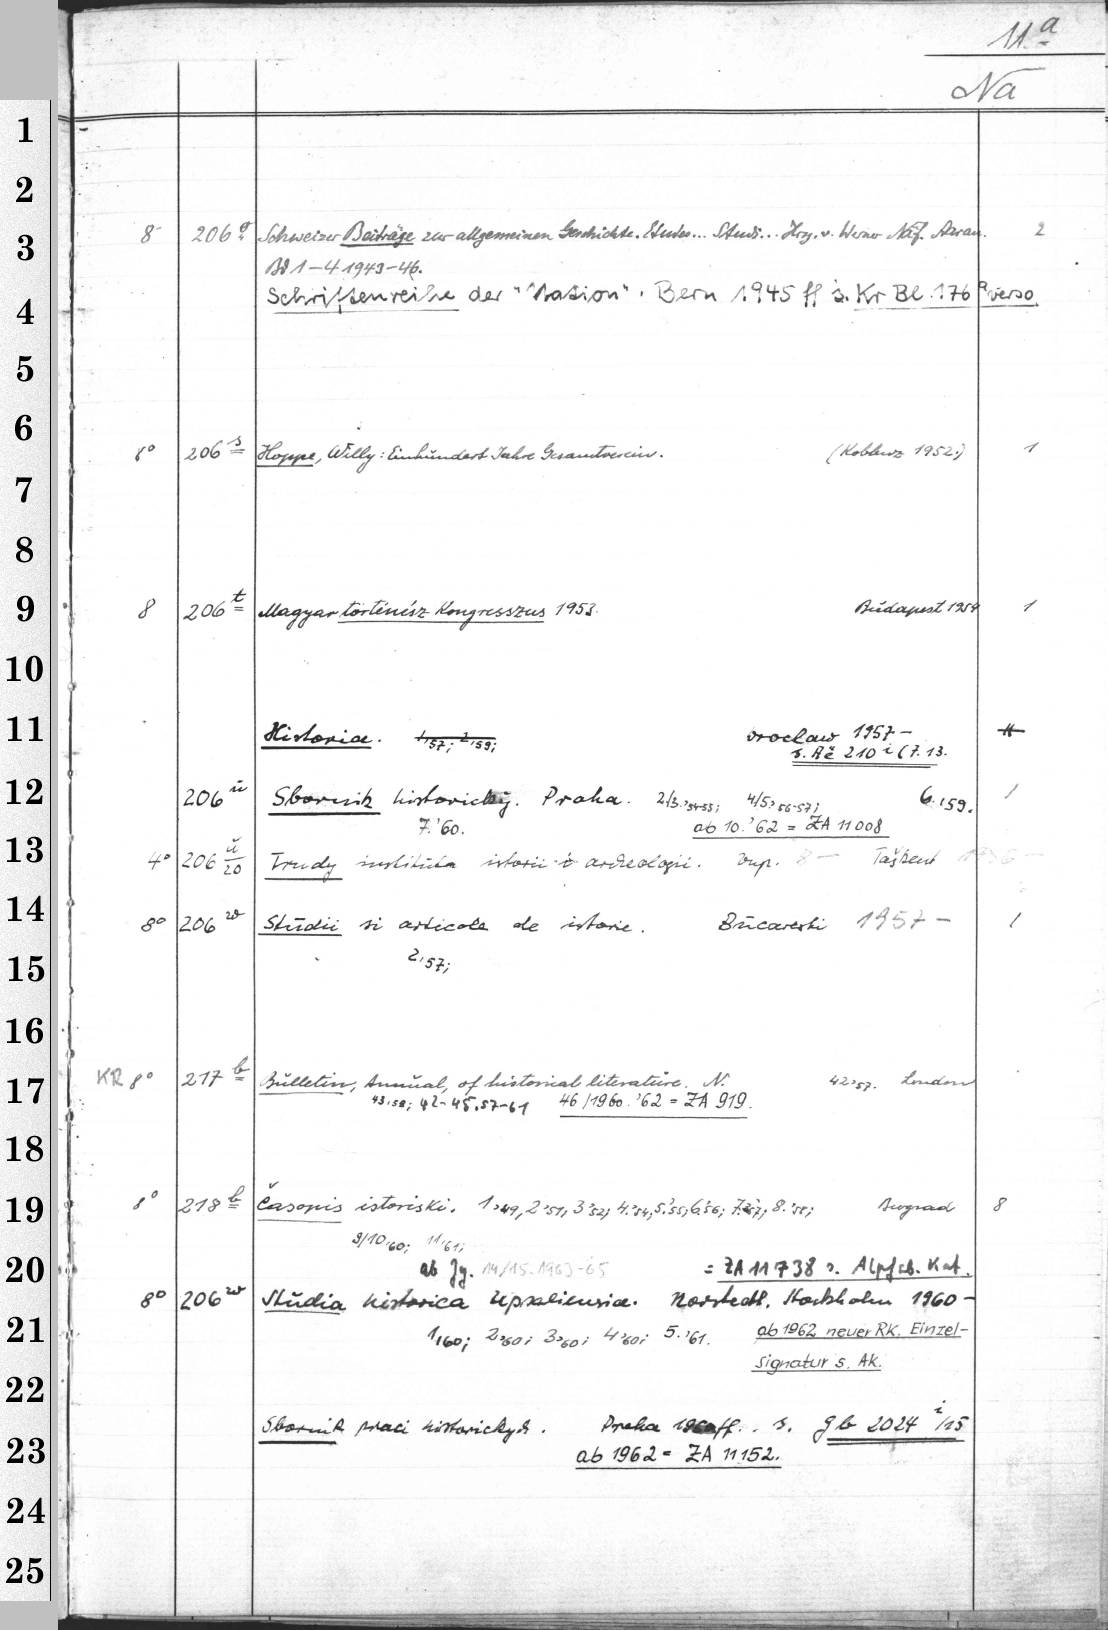 11.a
Na
1
2
3
4
5
6
7
8
9
10
11
12
13
14
15
16
17
18
19
20
21
22
23
24
25
8° 206 q Schweizer Beiträge zur allgemeinen Geschichte. Etudes... Studi... Hrg. v. Werner Näf. Aarau. 2
Bd 1-4 1943-46.
Schriftenreihe der "Nation". Bern 1945 ff s. Kr Bl. 176 a verso
8° 206 s Hoppe, Willy: Einhundert Jahre Gesamtverein. (Koblenz 1952.) 1
8 206 t Magyar történész Kongresszus 1953. Budapest 1954 1
Historica. 1,'57; 2,'59; Wroclaw 1957 -
s. Až 210 i (7.13.
206 u Sbornik historický. Praha. 2/3.'54-55; 4/5,'56-57; 6.'59. 1
7.'60. ab 10.'62 = ZA 11008
4° 206 u/20 Trudy instituta istorii i archeologii. Vyp. 8 — Taškent 1956 —
8° 206 w Studii si articole de istorie. Bucaresti 1957 — 1
2,'57;
KR 8° 217 b Bulletin, Annual, of historical literature. N. 42.'57. London
43.'58; 42-45.57-61 46/1960.'62 = ZA 919.
8° 218 b Časopis istoriski. 1,'49, 2,'51, 3'52; 4.'54, 5.'55; 6.'56; 7.'57; 8.'58; Beograd 8
9/10,'60; 11,'61;
ab Jg. 14/15.1963-65 = ZA 11738 s. Alph. Kat.
8° 206 w Studia historica Upsaliensia. Norstedt. Stockholm 1960 -
1,'60; 2,'60; 3,'60; 4,'60; 5.'61. ab 1962 neuer RK. Einzel-
signatur s. AK.
Sbornik praci historickych. Praha 1960ff. s. Gb 2024 i/15
ab 1962 = ZA 11152.